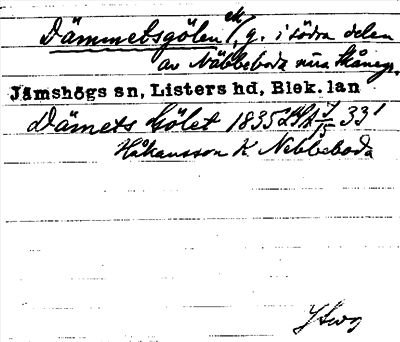 Dämmetsgölen, g. i södra delen
av Näbbeboda nära Skånegr.
Jämshögs sn, Listers hd, Blek. län
Dämets Gölet 1835 33
Håkansson K. Nebbeboda